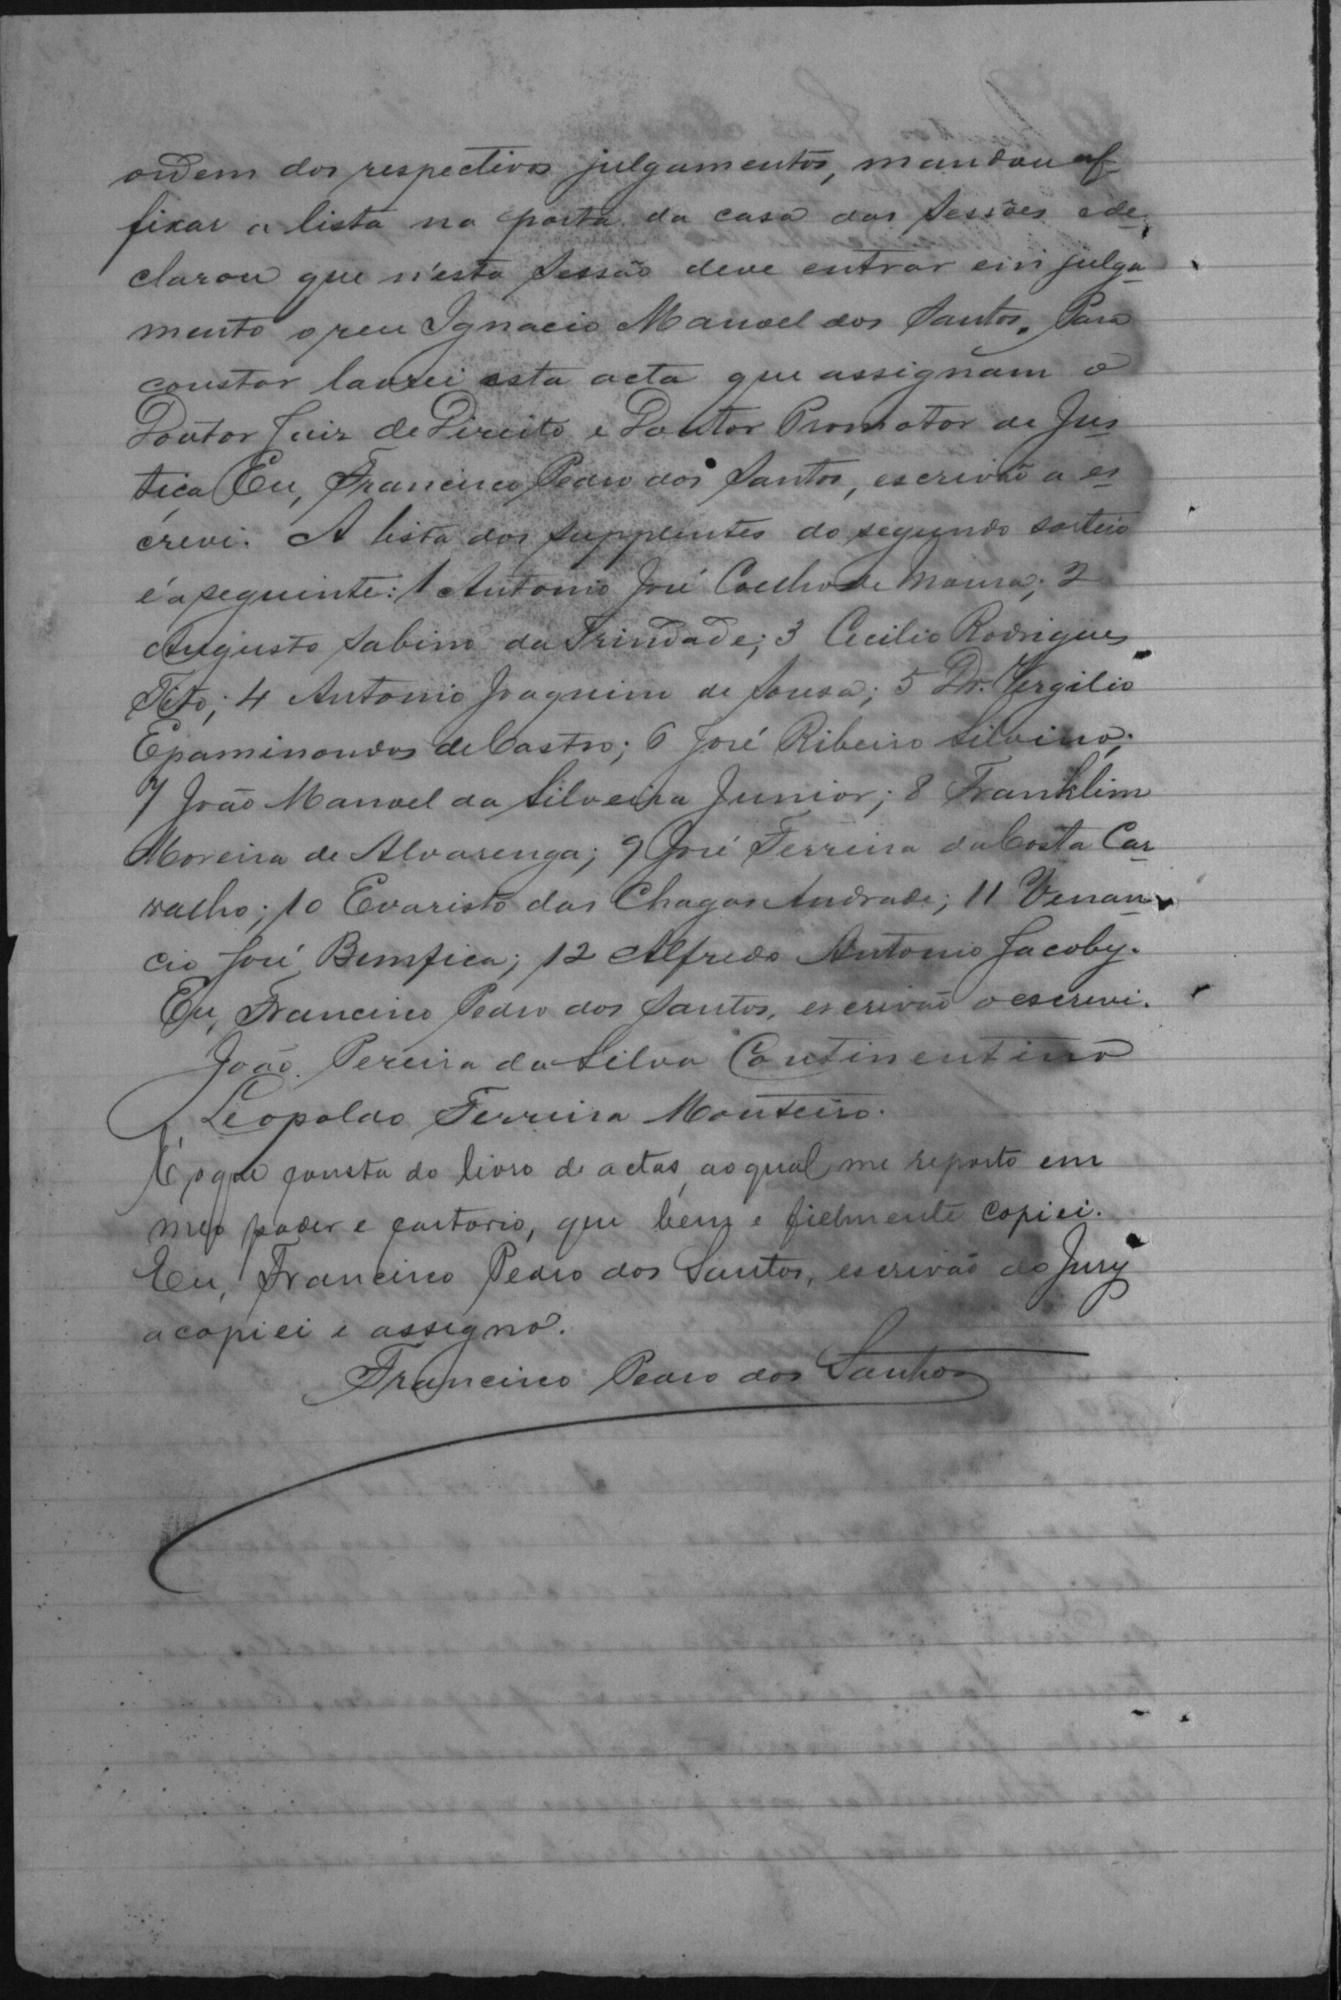 ordem dos respectivos julgamentos, mandou af-
fixar a lista na porta da casa das sessões e de-
clarou que n'esta sessão deve entrar em julga-
mento o reu Ignacio Manoel dos Santos. Para
constar lavrei esta acta que assignam o
Doutor Juiz de Direito e Doutor Promotor de Jus-
tiça. Eu, Francisco Pedro dos Santos, escrivão a es-
crevi. A lista dos supplentes do segundo sorteio
é a seguinte: 1 Antonio José Coelho de Moura; 2
Augusto Sabino da Trindade; 3 Cecilio Rodrigues
Tito; 4 Antonio Joaquim de Sousa; 5 Dr. Vergilio
Epaminondas de Castro; 6 José Ribeiro Silvino;
7 João Manoel da Silveira Junior; 8 Franklim
Moreira de Alvarenga; 9 José Ferreira da Costa Car-
valho; 10 Evaristo das Chagas Andrade; 11 Venan-
cio José Bemfica; 12 Alfredo Antonio Jacoby.
Eu, Francisco Pedro dos Santos, escrivão o escrevi.
João Pereira da Silva Continentino
Leopoldo Ferreira Monteiro.
É o que consta do livro de actas, ao qual me reporto em
meo poder e cartorio, que bem e fielmente copiei.
Eu, Francisco Pedro dos Santos, escrivão do Jury
a copiei e assigno.
Francisco Pedro dos Santos